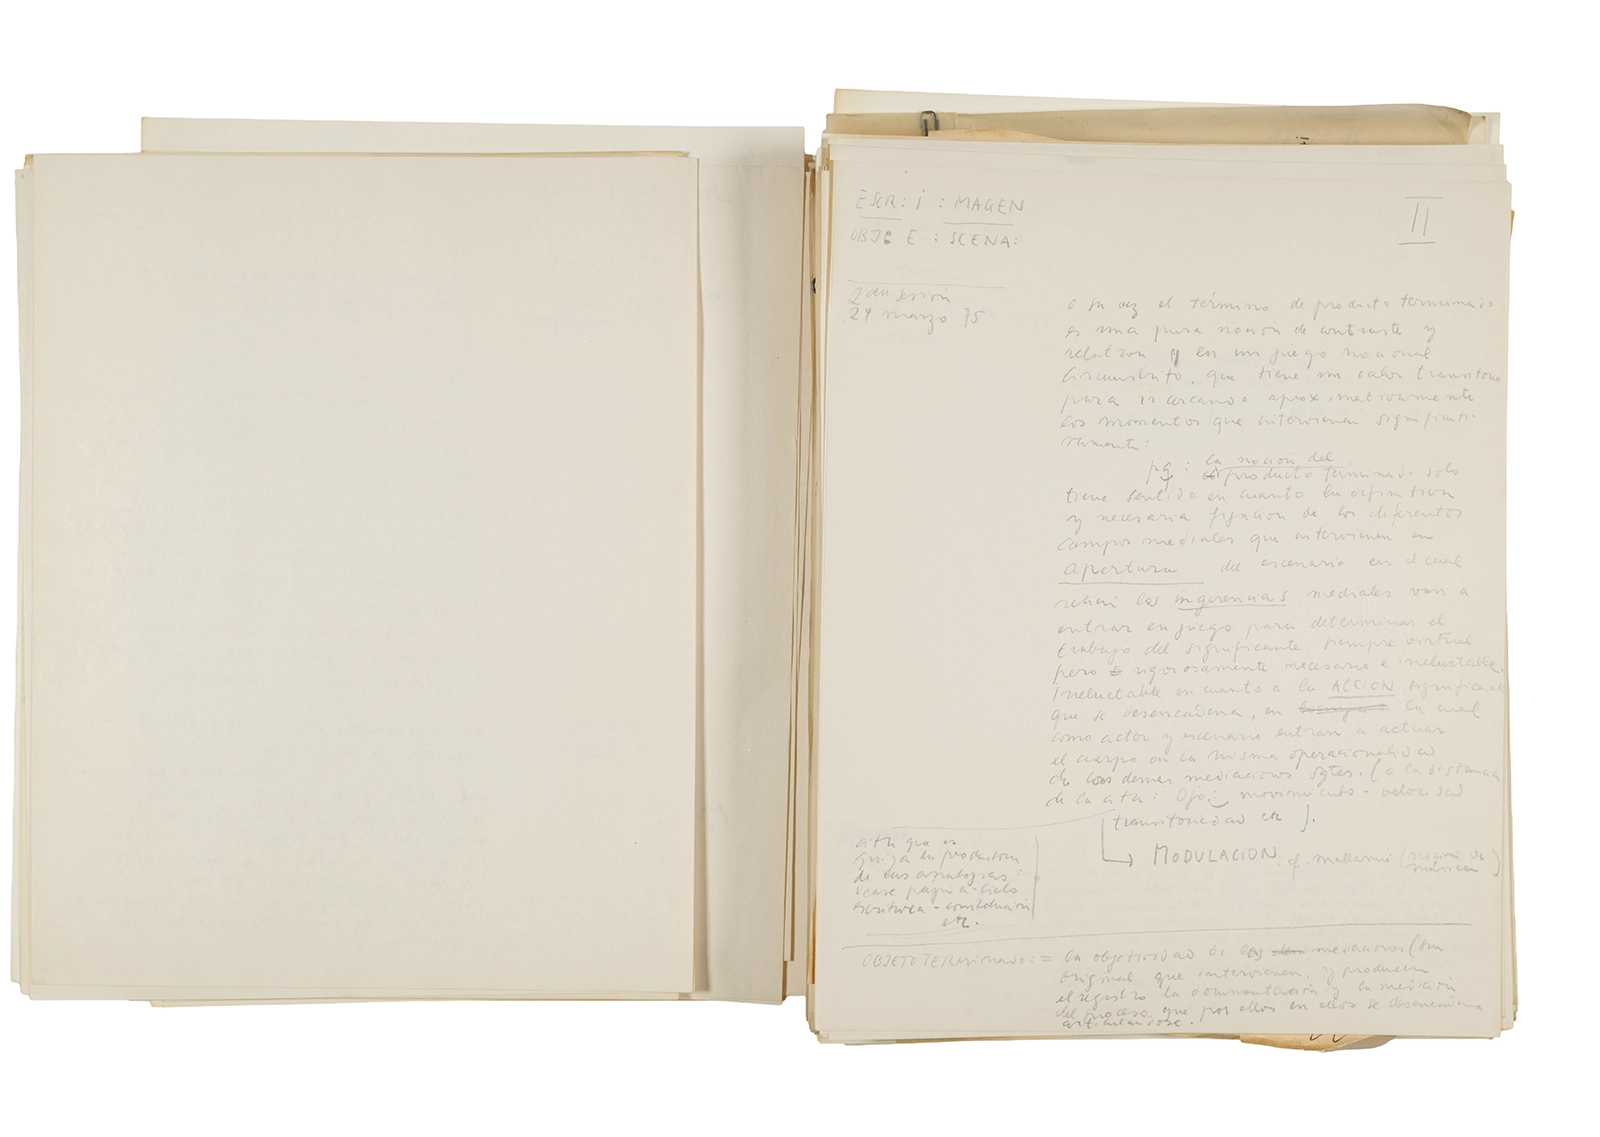 ESCR: I : MAGEN
OBJE E : SCENA:
II
2da sesión
29 marzo 75
a su vez el término de producto terminado
es una pura noción de contraste y
relativa en un juego nocional
circunscrito, que tiene un valor transitorio
para ir cercando aproximativamente
los momentos que intervienen significati-
vamente:
pq : la noción del
producto terminado solo
tiene sentido en cuanto la definitiva
y necesaria fijación de los diferentes
campos mediales que intervienen en
apertura del escenario en el cual
los ingerencias mediales van a
entrar en juego para determinar el
trabajo del significante siempre virtual
pero rigorosamente necesario e ineluctable.
Ineluctable en cuanto a la ACCION significante
que se desencadena, en la cual
como actor y escenario entran a actuar
el cuerpo en la misma operacionalidad
de las demas mediaciones sgtes. (a la distancia
de la cita: Ojo: movimiento - velocidad
transitoriedad etc ).
MODULACION cf. mallarmé (noción de
música)
cita que es
quizá la productora
de las analogías:
vease página-cielo
escritura - constelación
etc.
OBJETO TERMINADO: = la objetividad de las mediaciones (sin
original que intervienen, y producen
el registro la documentación y la medición
del proceso que por ellos en ellos se desencadena
articulandose.